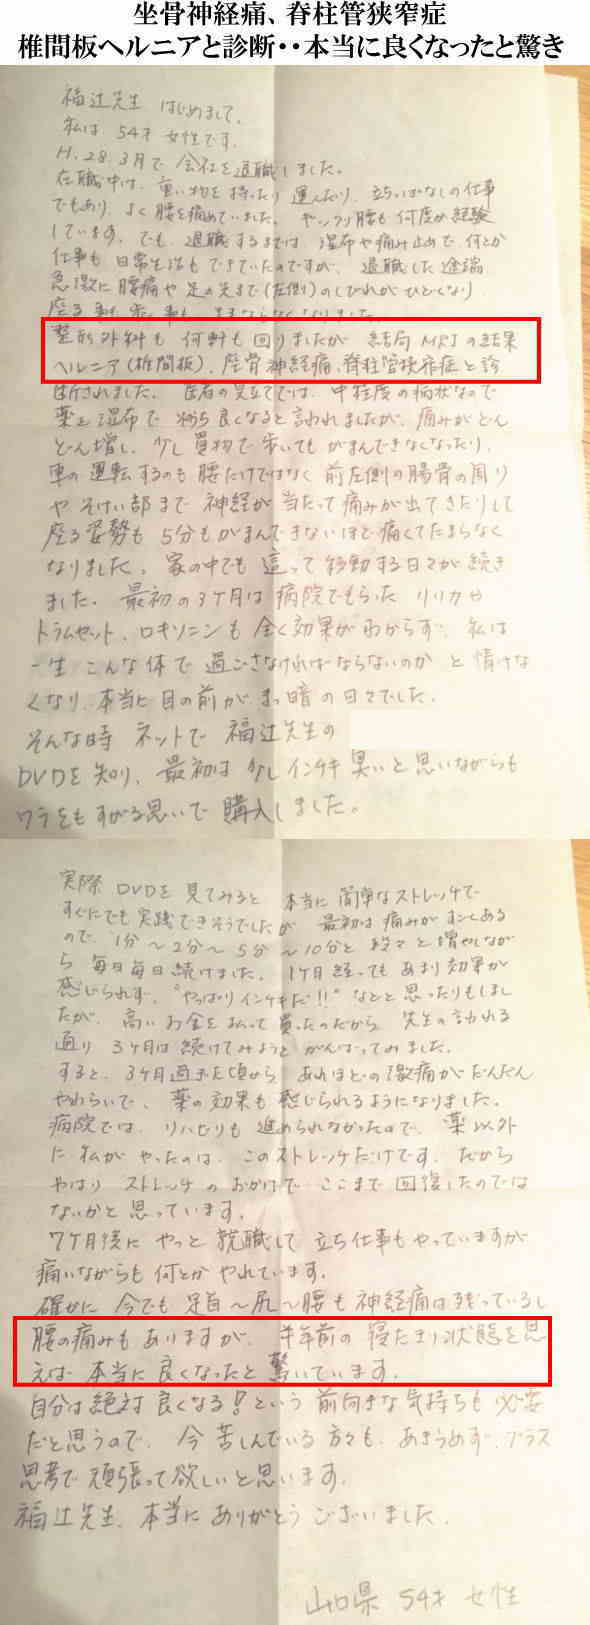 坐骨神経痛、脊柱管狭窄症
椎間板ヘルニアと診断・・本当に良くなったと驚き
福辻先生 はじめまして。
私は 54才 女性です。
H.28.3月で 会社を退職しました。
在職中は、重い物を持ったり 運んだり、立ちっぱなしの仕事
でもあり、よく腰を痛めていました。ヤックリ腰も 何度か経験
しています。でも、退職するまでは、湿布や痛み止めで 何とか
仕事も 日常生活もできていたのですが、退職した途端
急激に 腰痛や 足の先まで(左側)のしびれがひどくなり
座る事、歩く事も、ままならなくなりました。
整形外科も 何軒も 回りましたが 結局 MRIの結果
ヘルニア(椎間板)、座骨神経痛、脊柱管狭窄症と診
断されました。医者の見立てでは、中程度の病状なので
薬と湿布で 内 良くなると言われましたが、痛みがどん
どん増し、少し買物で歩いても がまんできなくなったり、
車の運転するのも 腰だけではなく 前左側の腸骨の周り
や そけい部まで 神経が当たって痛みが出てきたりして
座る姿勢も 5分もがまんできないほど痛くてたまらなく
なりました。家の中でも 這って移動する日々が続き
ました。最初の3ヶ月は 病院でもらった リリカや
トラムセット、ロキソニンも 全く効果がわからず、私は
一生 こんな体で 過ごさなければならないのか と 情けな
くなり、本当に目の前がまっ暗の日々でした。
そんな時 ネットで 福辻先生の
DVDを知り、最初は 少しインチキ臭いと思いながらも
ワラをもすがる思いで購入しました。
実際 DVDを見てみると 本当に簡単なストレッチで
すぐにでも実践できそうでしたが 最初は痛みがすごくある
ので、1分～2分～5分～10分と 段々と増やしなが
ら 毎日毎日続けました。1ヶ月経っても あまり効果が
感じられず、“やっぱりインチキだ!!”などと思ったりもしまし
たが、高いお金を払って買ったのだから 先生の言われる
通り 3ヶ月は続けてみようと がんばってみました。
すると、3ヶ月過ぎた頃から あれほどの激痛がだんだん
やわらいで、薬の効果も感じられるようになりました。
病院では、リハビリも 進められなかったので、薬以外
に私がやったのは、このストレッチだけです。だから
やはり ストレッチのおかげで ここまで回復したのでは
ないかと思っています。
7ヶ月後に やっと 就職して 立ち仕事もやっていますが
痛いながらも 何とかやれています。
確かに 今でも 足首～尻～腰も 神経痛は残っているし
腰の痛みもありますが、半年前の寝たきり状態を思
えば 本当に良くなったと驚いています。
自分は絶対良くなる!という 前向きな気持ちも必要
だと思うので、今 苦しんでいる方々も、あきらめず、プラス
思考で 頑張って欲しいと思います。
福辻先生、本当に ありがとうございました。
山口県 54才 女性